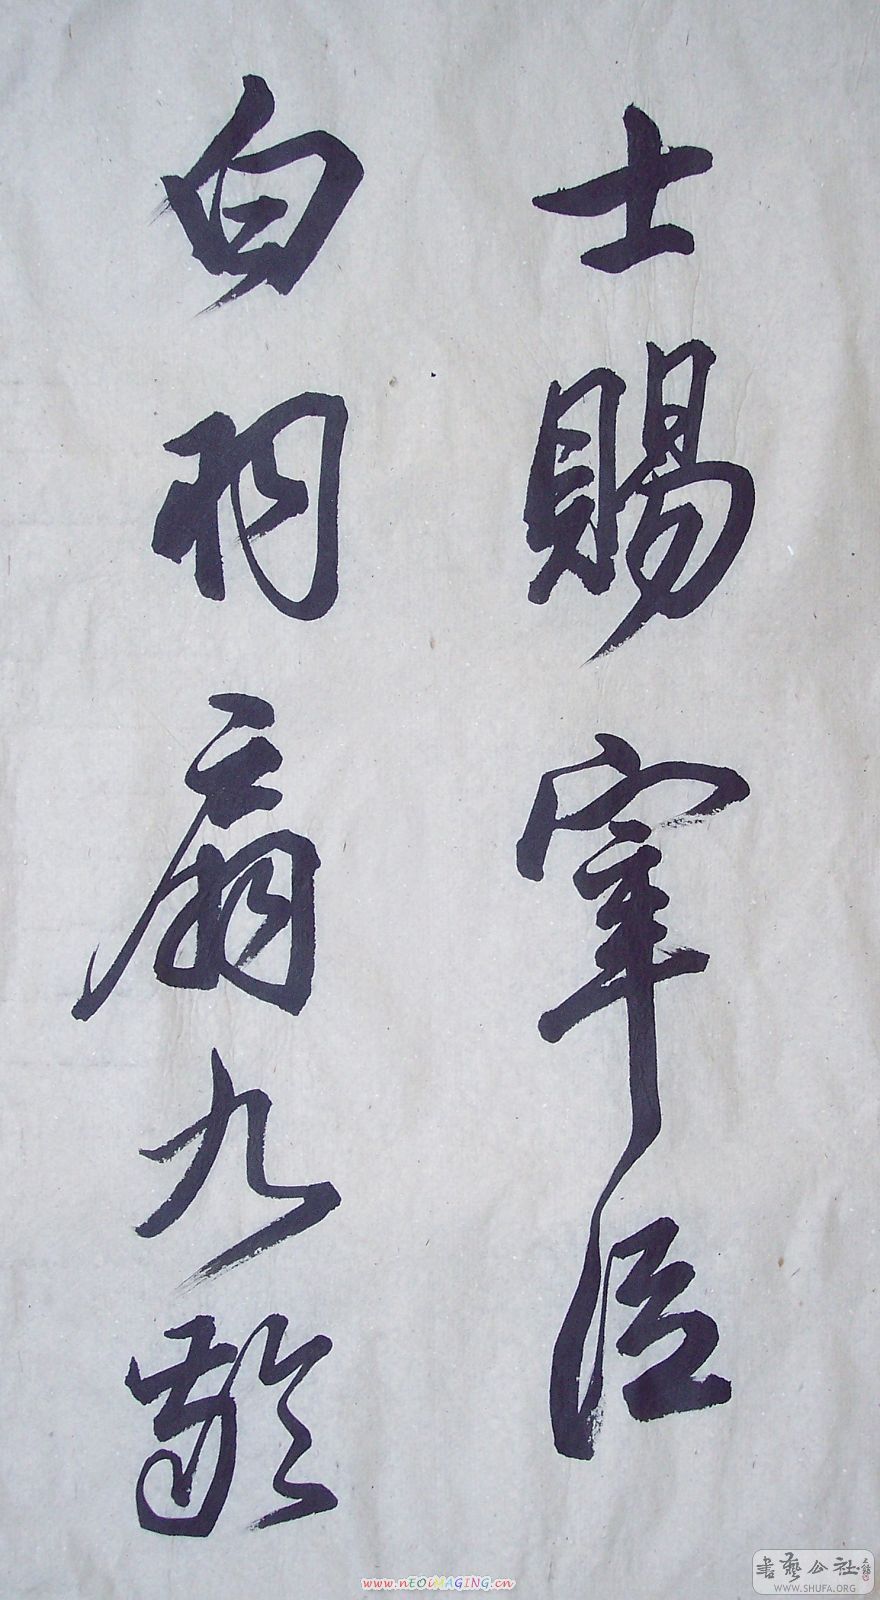 士賜宰臣
白羽扇九齡
www.nEOiMAGiNG.cn
書藝公社
WWW.SHUFA.ORG